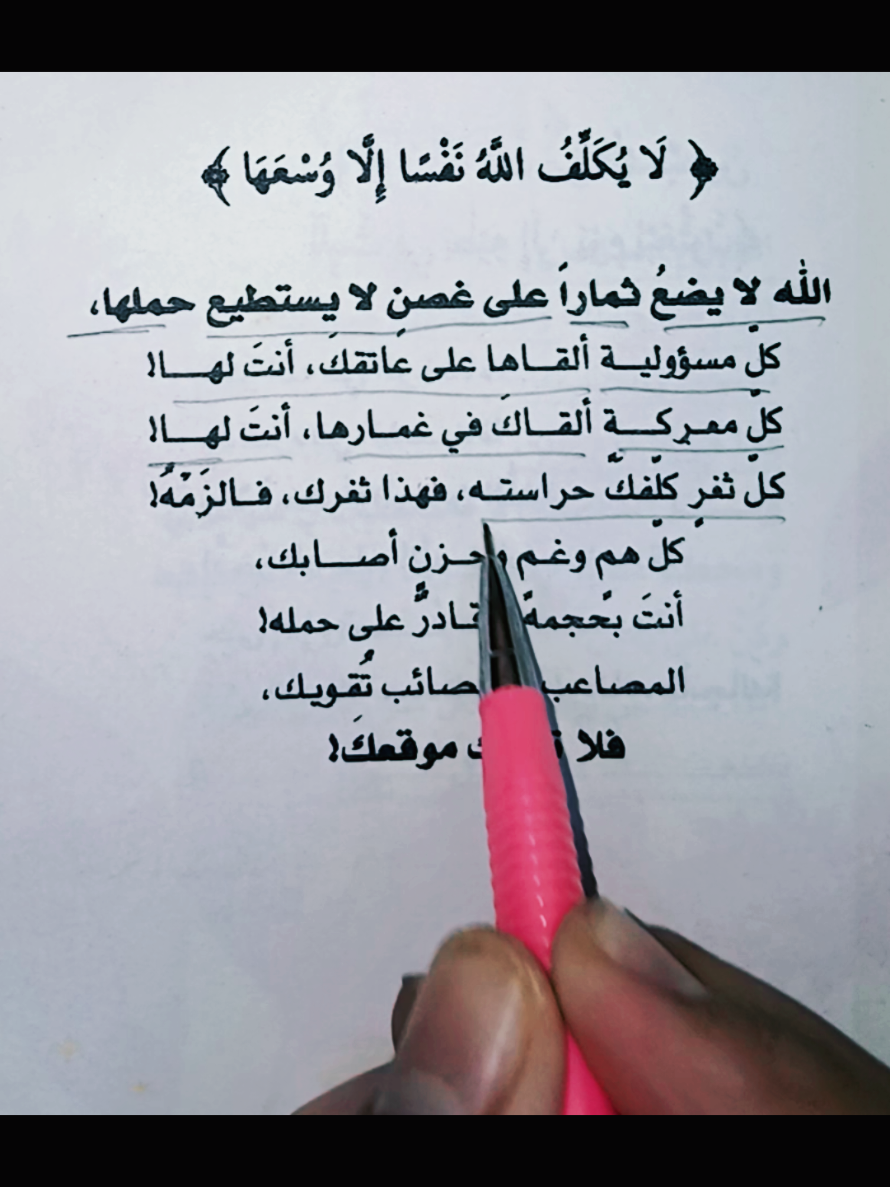 ﴿ لَا يُكَلِّفُ اللَّهُ نَفْسًا إِلَّا وُسْعَهَا ﴾
الله لا يضعُ ثماراً على غصنٍ لا يستطيع حملها،
كلّ مسؤوليـة ألقـاها على عاتقكَ، أنتَ لهـا!
كلّ معركـة ألقـاكَ في غمـارها، أنتَ لهـا!
كلّ ثغرٍ كلّفكَ حراستـه، فهذا ثغرك، فـالزَمْهُ!
كلّ هم وغـم وحـزنٍ أصـابك،
أنتَ بحجمه قـادرٌ على حمله!
المصاعب تُقويك،
فلا موقعكَ!